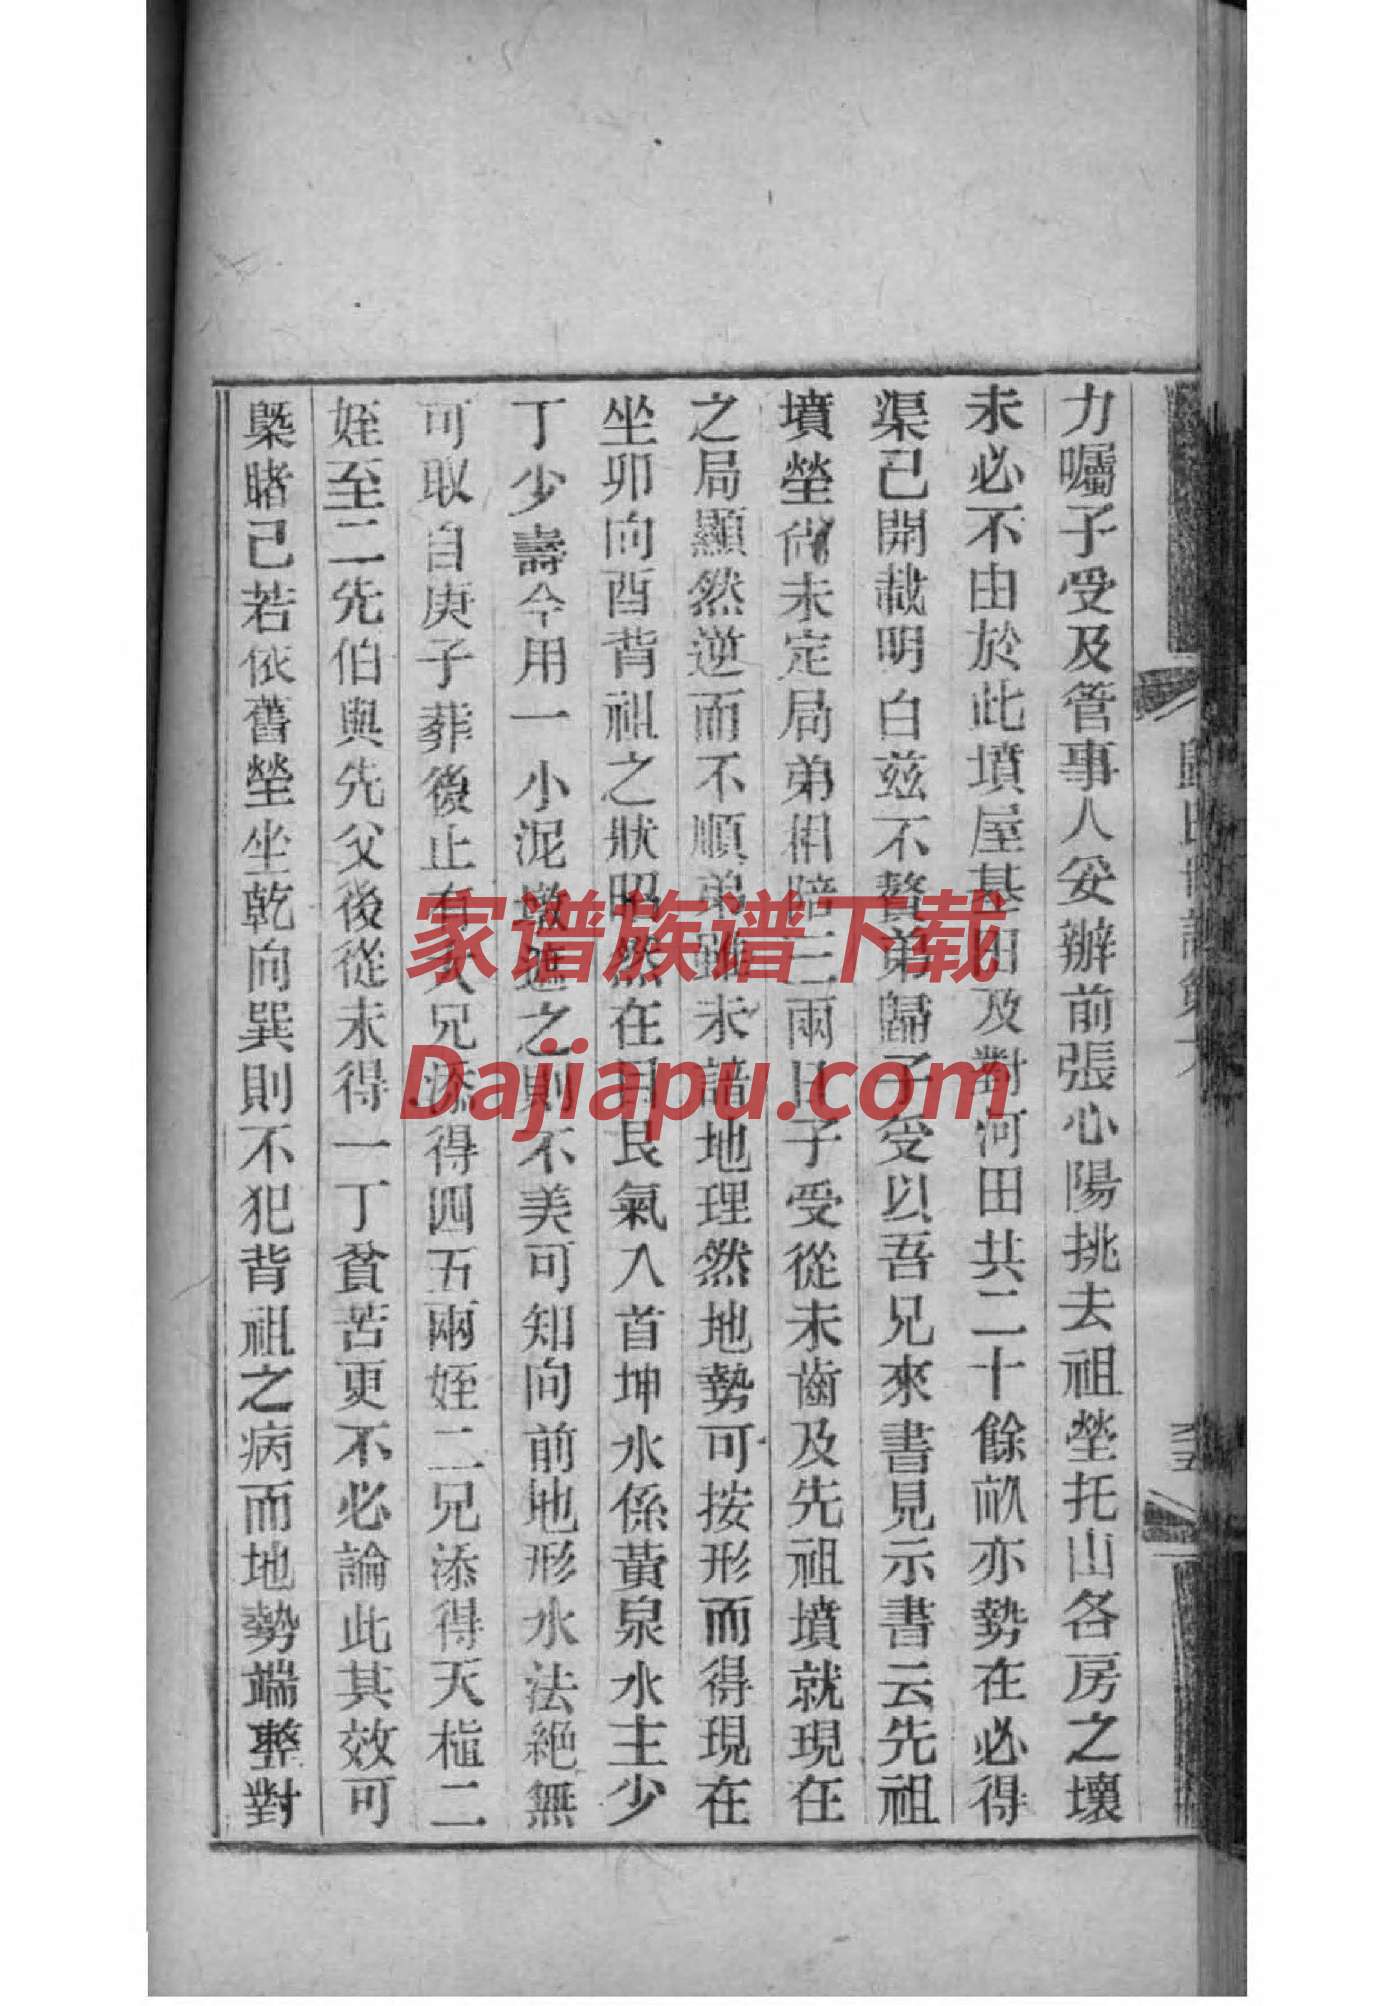 力囑子受及管事人妥辦前張心陽挑去祖塋托山各房之壞
未必不由於此墳屋基田及對河田共二十餘畝亦勢在必得
渠已開載明白玆不贅弟歸子受以吾兄來書見示書云先祖
墳塋尙未定局弟相陪三兩日子受從未齒及先祖墳就現在
之局顯然逆而不順弟雖未諳地理然地勢可按形而得現在
坐卯向酉背祖之狀昭然在目艮氣入首坤水係黃泉水主少
丁少壽今用一小泥墩遮之則不美可知向前地形水法絕無
可取自庚子葬後止有大兄添得四五兩姪二兄添得天植二
姪至二先伯與先父後從未得一丁貧苦更不必論此其效可
槩睹已若依舊塋坐乾向巽則不犯背祖之病而地勢端整對
家谱族谱下载
Dajiapu.com